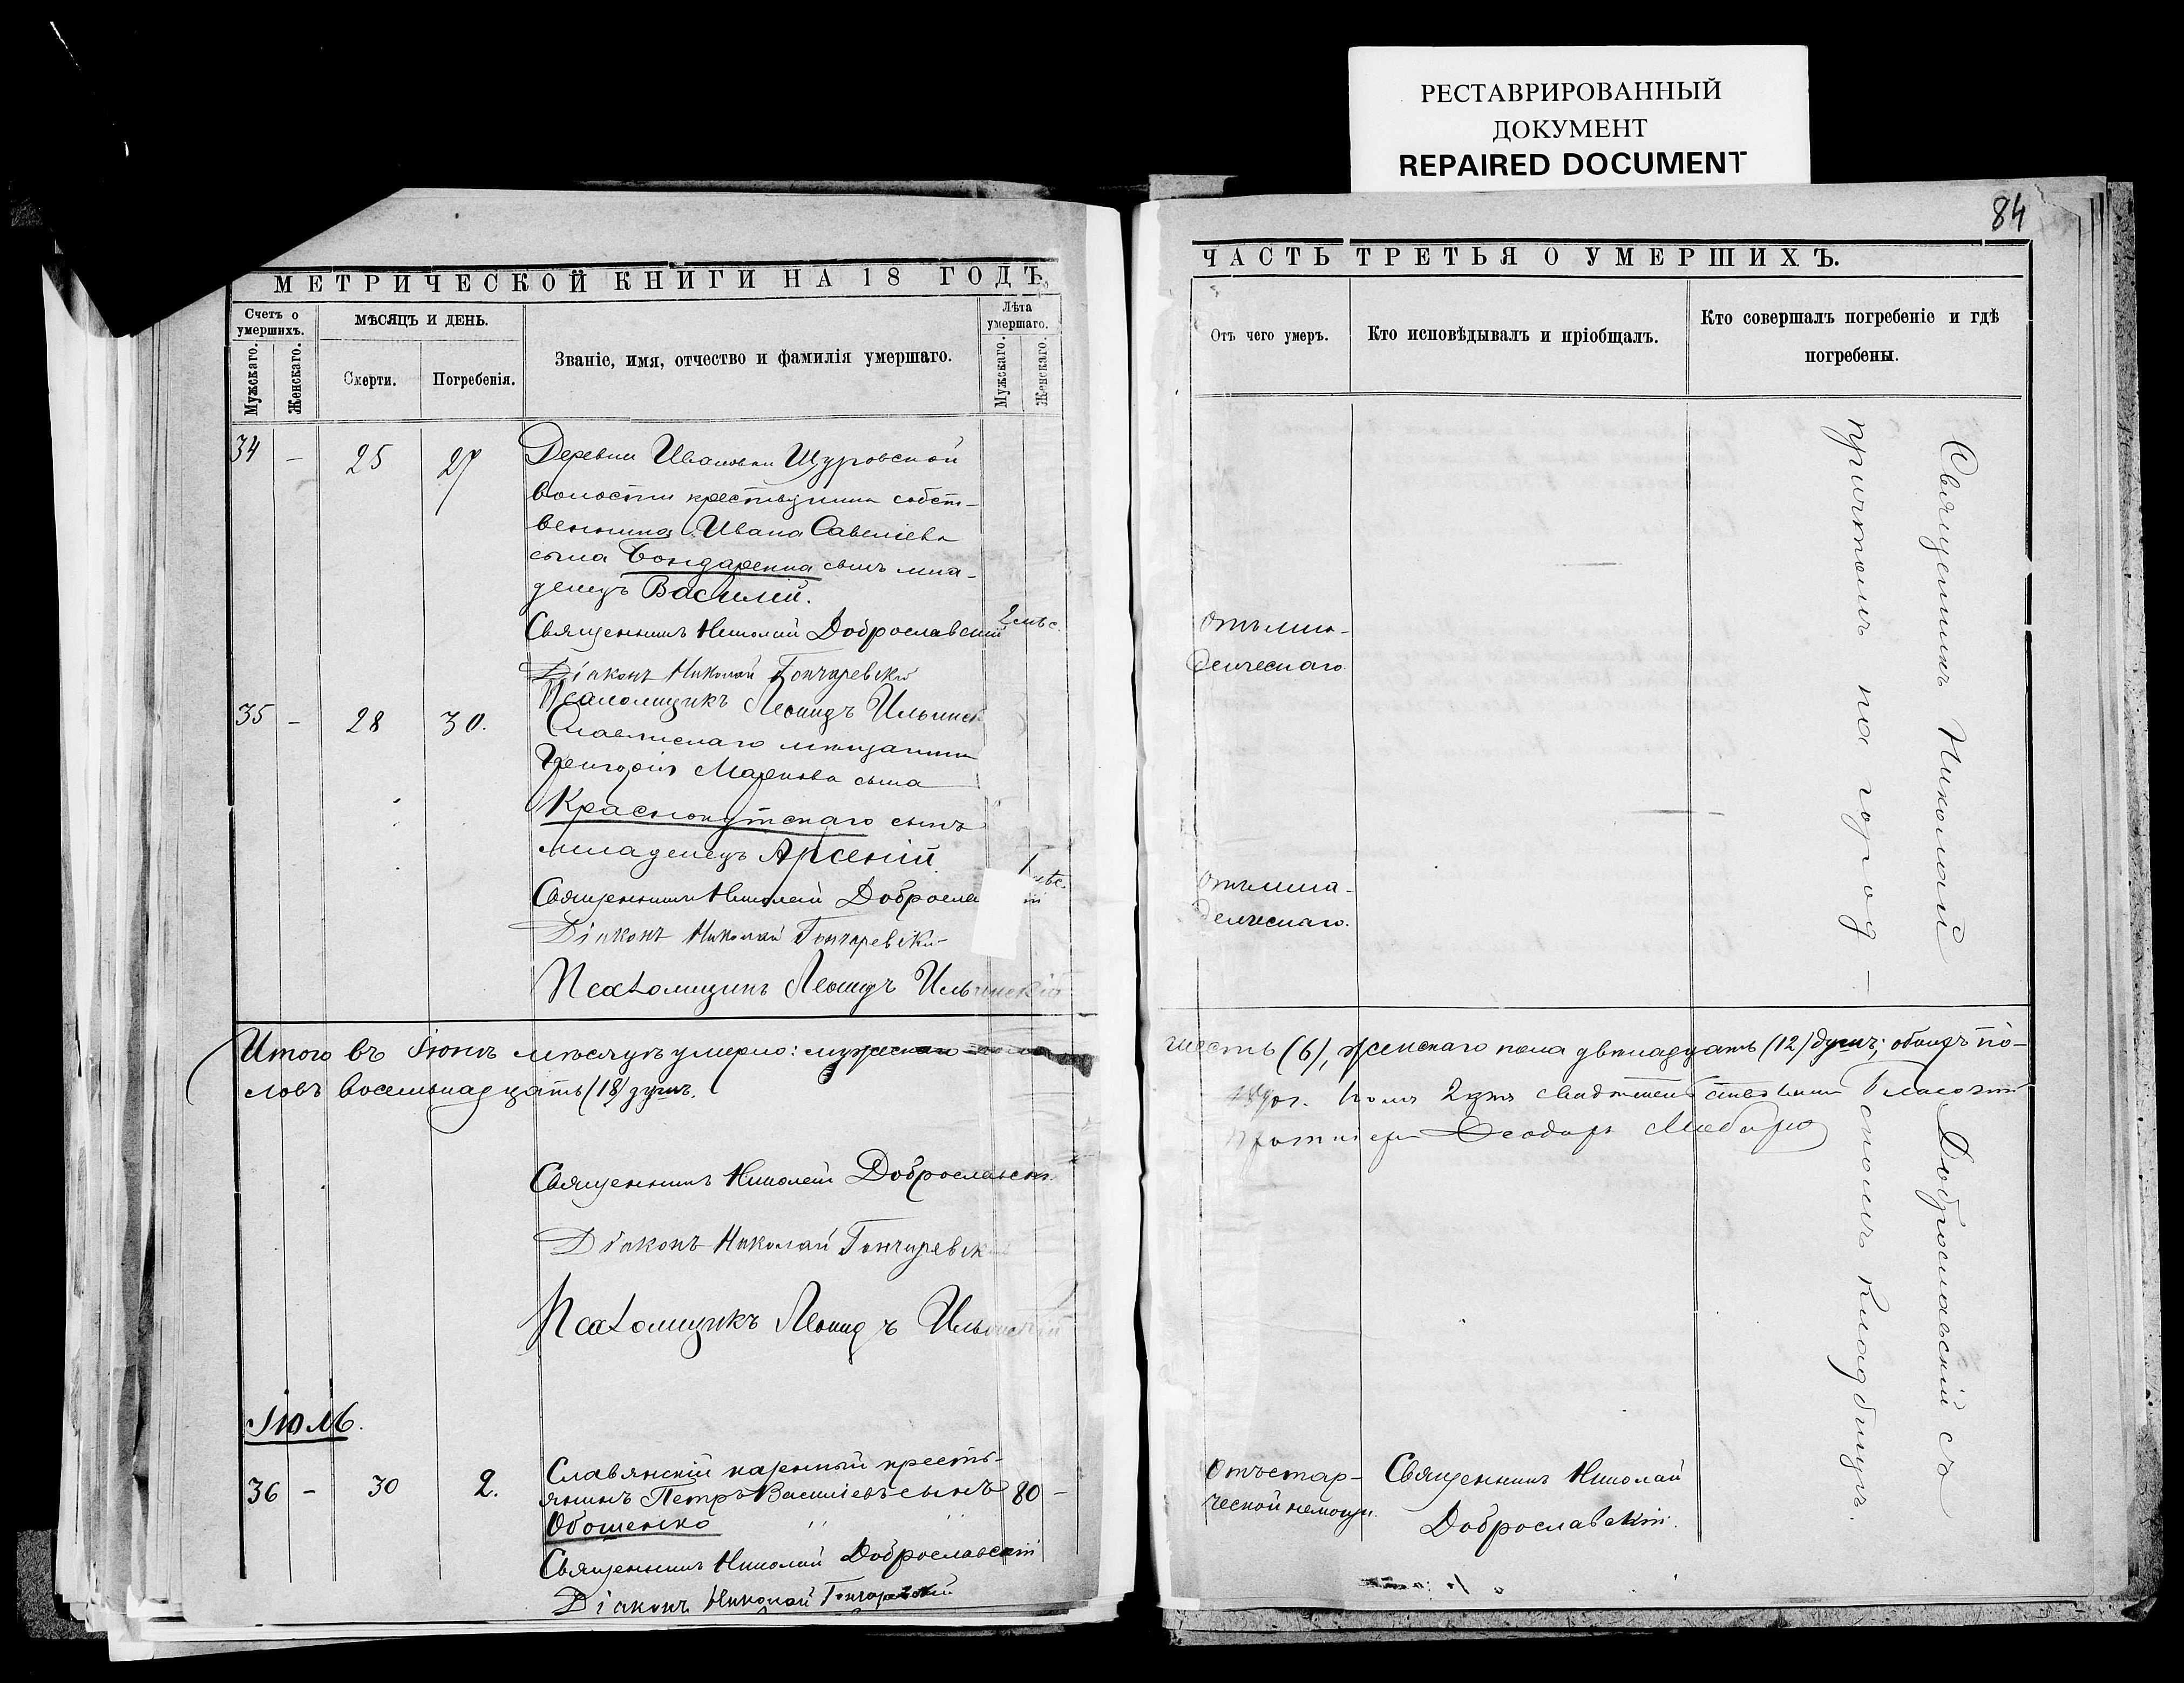 РЕСТАВРИРОВАННЫЙ
ДОКУМЕНТ
REPAIRED DOCUMENT
МЕТРИЧЕСКОЙ КНИГИ НА 18 ГОДЪ.
Счетъ о умершихъ.
Мужскаго.
Женскаго.
МѢСЯЦЪ И ДЕНЬ.
Смерти.
Погребенія.
Званіе, имя, отчество и фамилія умершаго.
Лѣта умершаго.
Мужскаго.
Женскаго.
34 – 25 27
Деревни Ивановки Щуровской
волости крестьянина собст-
венника Ивана Савеліева
сына Бондаренка сынъ мла-
денецъ Василій.
2 мѣс.
Священникъ Николай Доброславскій
Діаконъ Николай Гончаревскій
Псаломщикъ Леонидъ Ильинск
35 – 28 30.
Славянскаго мѣщанина
Григорія Маркова сына
Краснокутскаго сынъ
младенецъ Арсеній
1 мѣс.
Священникъ Николай Доброслав
Діаконъ Николай Гончаревскі
Псаломщикъ Леонидъ Ильинскій
Итого въ Іюнѣ мѣсяцѣ умерло: мужескаго
ловъ восемьнадцать (18) душъ.
Священникъ Николай Доброславск
Діаконъ Николай Гончаревск
Псаломщикъ Леонидъ Ильинскій
Іюль.
36 – 30 2.
Славянскій казенный кресть-
янинъ Петръ Василіевъ сынъ 80 –
Обошенко
Священникъ Николай Доброславскій
Діаконъ Николай Гончаревскій
84
ЧАСТЬ ТРЕТЬЯ О УМЕРШИХЪ.
Отъ чего умеръ.
Кто исповѣдывалъ и пріобщалъ.
Кто совершалъ погребеніе и гдѣ
погребены.
Отъ мла-
денческаго.
Отъ мла-
денческаго.
шесть (6), женскаго пола двѣнадцать (12) душъ; обоихъ по-
Благочин
Ѳеодоръ
Отъ стар-
ческой немощи.
Священникъ Николай
Доброславскій.
Священникъ Николай Доброславскій съ
причтомъ на город–скомъ кладбищѣ.